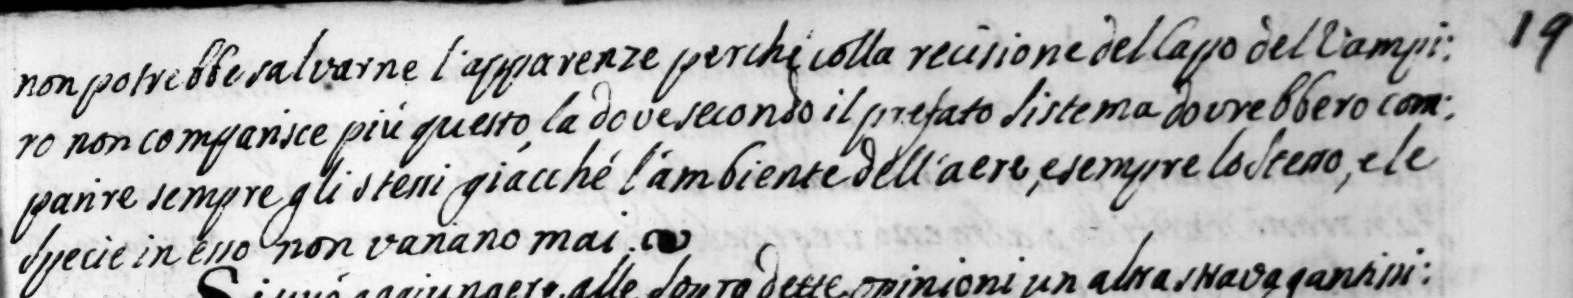 19
non potrebbe salvarne l'apparenze perché colla recisione del Capo del Vampi:
ro non comparisce piú questo la dove secondo il prefato sistema dovrebbero com:
parire sempre gli stessi giácché l'ámbiente dell'aere, e sempre lo stesso, e le
specie in esso non variano mai.
Si può aggiungere alle sopra dette opinioni un altra stravagantissi: